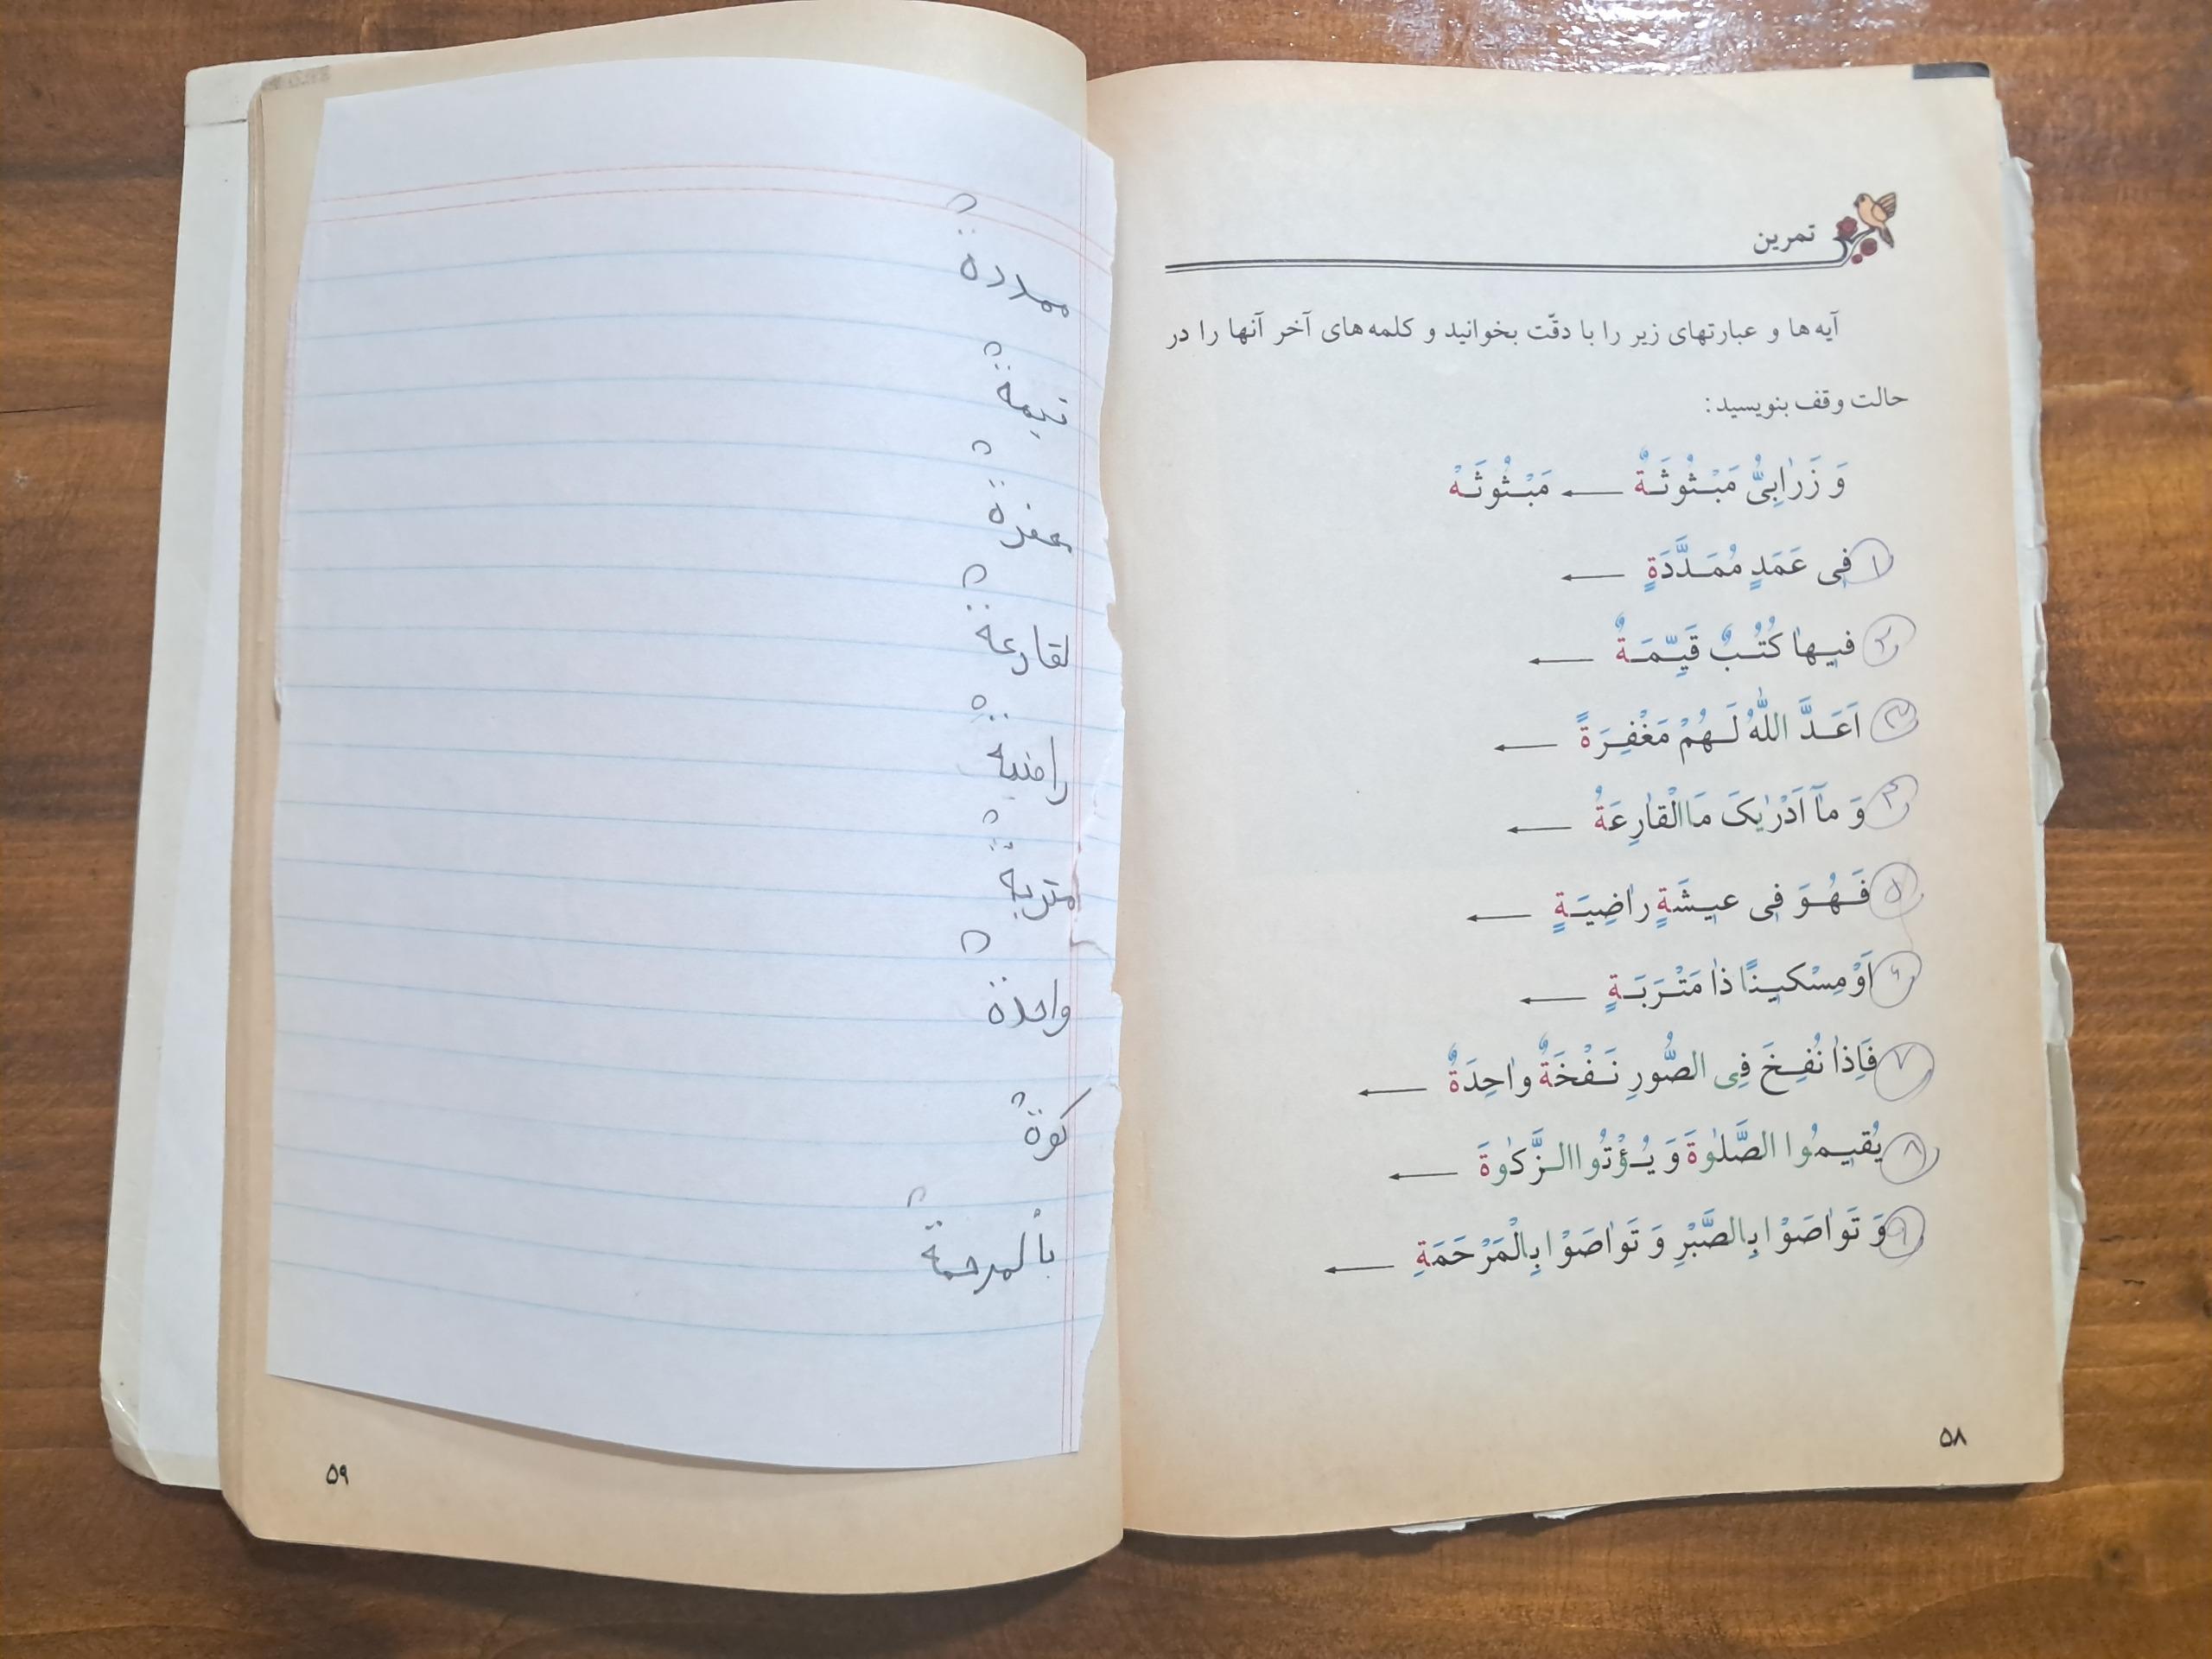 تمرین
آیه ها و عبارتهای زیر را با دقّت بخوانید و کلمه های آخر آنها را در
حالت وقف بنویسید:
وَ زَرٰابِیُّ مَبْثُوثَةٌ ← مَبْثُوثَهْ
۱ فِی عَمَدٍ مُمَدَّدَةٍ ←
۲ فیها کُتُبٌ قَیِّمَةٌ ←
۳ اَعَدَّ اللّٰهُ لَهُمْ مَغْفِرَةً ←
۴ وَ مٰٓا اَدْرٰیکَ مَا الْقٰارِعَةُ ←
۵ فَهُوَ فِی عیشَةٍ رٰاضِیَةٍ ←
۶ اَوْ مِسْکینًا ذٰا مَتْرَبَةٍ ←
۷ فَاِذٰا نُفِخَ فِی الصُّورِ نَفْخَةٌ وٰاحِدَةٌ ←
۸ یُقیمُوا الصَّلٰوةَ وَ یُؤْتُوا الزَّکٰوةَ ←
۹ وَ تَوٰاصَوْا بِالصَّبْرِ وَ تَوٰاصَوْا بِالْمَرْحَمَةِ ←
۵۸
ممددة
قیمة
لقارعة
راضیة
متربة
واحدة
بالمرحمة
۵۹